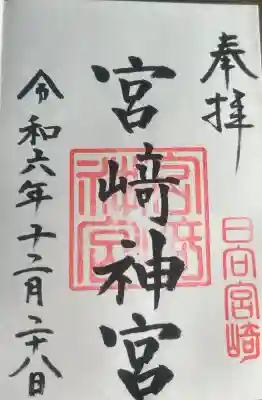 奉拝
日向宮崎
宮崎神宮
宮﨑神宮
令和六年十二月二十八日